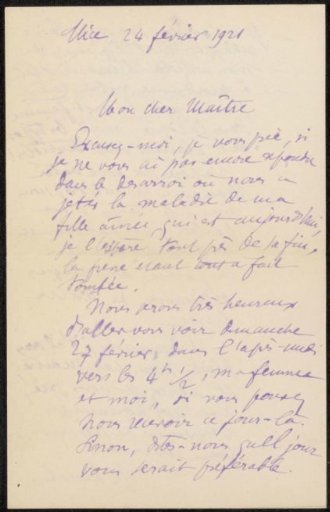 Nice 24 février 1921
Mon cher Maître
Excusez-moi, je vous prie, si
je ne vous ai pas encore répondu
dans le désarroi où nous a
jetés la maladie de ma
fille aînée, qui est aujourd'hui,
je l'espère tout près de sa fin,
la fièvre étant tout à fait
tombée.
Nous serons très heureux
d'aller vous voir dimanche
27 février, dans l'après-midi
vers les 4h 1/2, ma femme
et moi, si vous pouvez
nous recevoir ce jour-là.
Sinon, dites-nous quel jour
vous serait préférable.